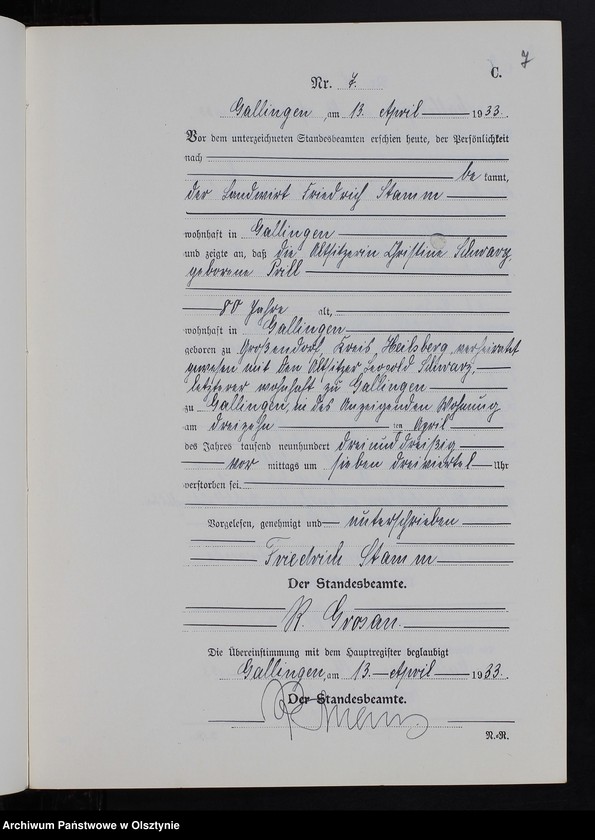 7
C.
Nr. 7.
Gallingen, am 13. April 1933.
Vor dem unterzeichneten Standesbeamten erschien heute, der Persönlichkeit
nach
be kannt,
der Landwirt Friedrich Stamm
wohnhaft in Gallingen
und zeigte an, daß die Altsitzerin Christine Schwarz
geborene Prill
80 Jahre alt,
wohnhaft in Gallingen
geboren zu Großendorf, Kreis Heilsberg verheiratet
gewesen mit dem Altsitzer Leopold Schwarz,
letzterer wohnhaft zu Gallingen
zu Gallingen, in des Anzeigenden Wohnung
am dreizehn ten April
des Jahres tausend neunhundert dreiunddreißig
vor mittags um sieben dreiviertel Uhr
verstorben sei.
Vorgelesen, genehmigt und unterschrieben
Friedrich Stamm
Der Standesbeamte.
R. Grosan.
Die Übereinstimmung mit dem Hauptregister beglaubigt
Gallingen, am 13. April 1933.
Der Standesbeamte.
N.-R.
Archiwum Państwowe w Olsztynie